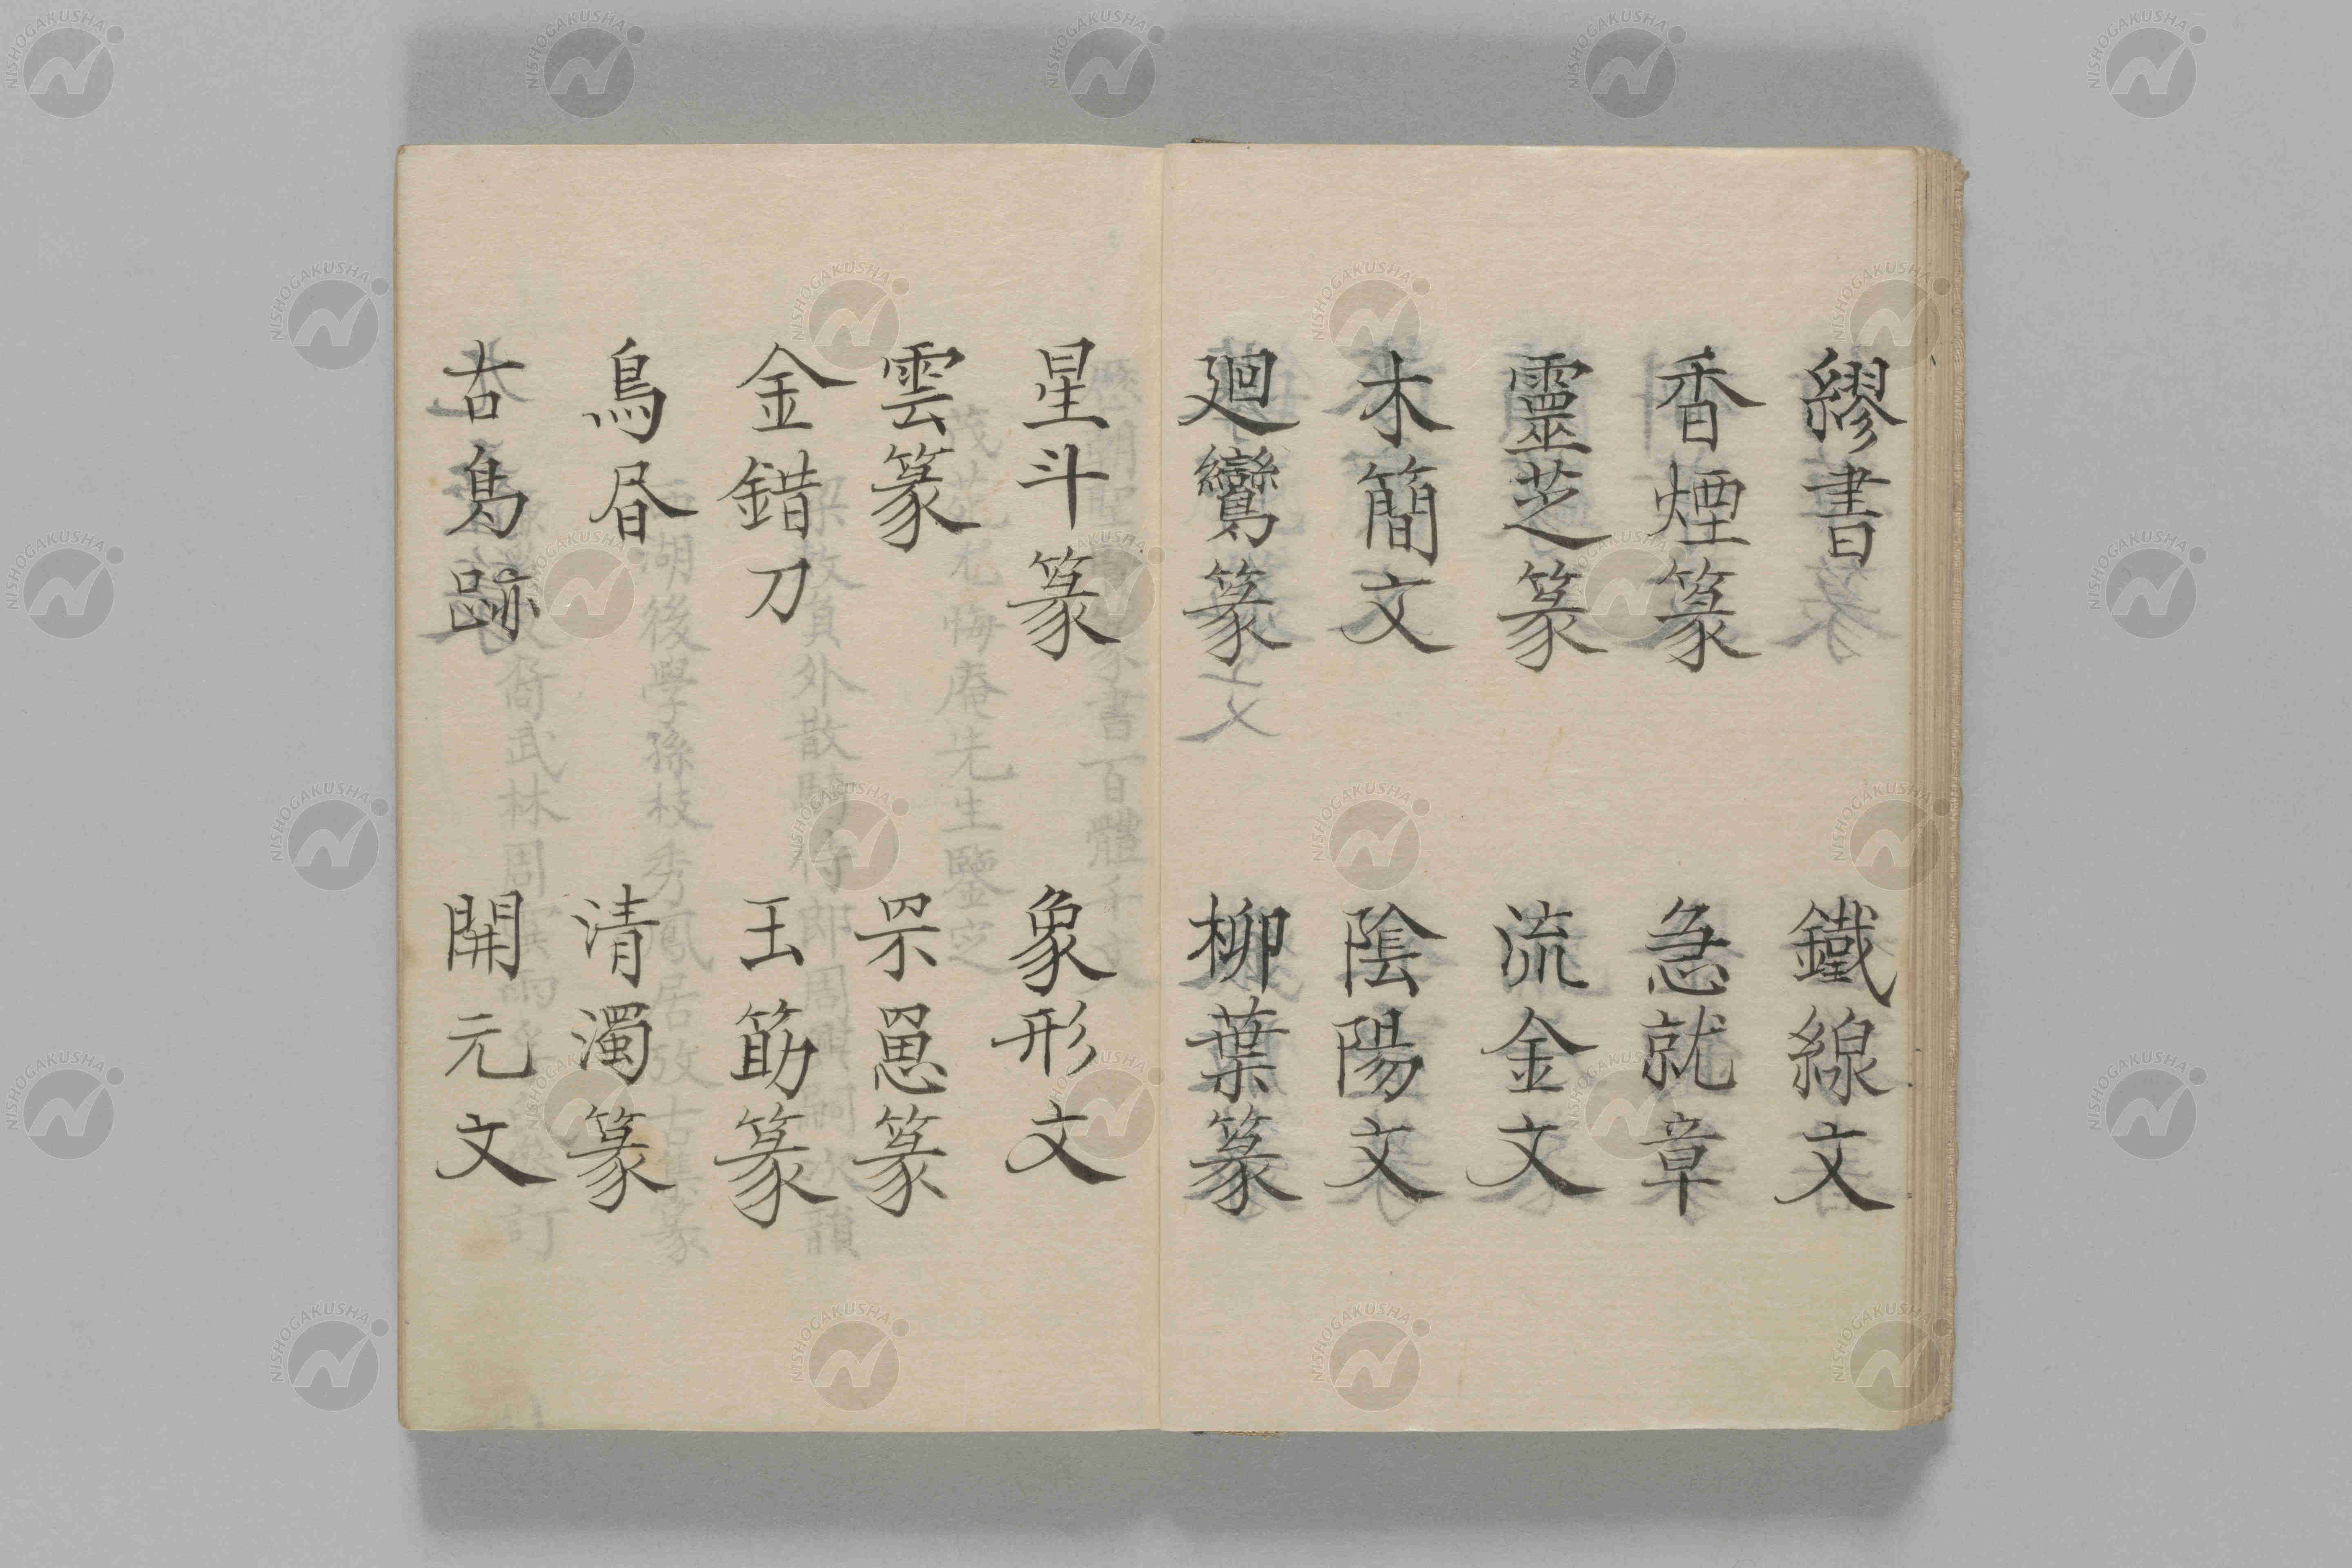 繆書 鐵線文
香煙篆 急就章
靈芝篆 流金文
木簡文 陰陽文
廻鸞篆 柳葉篆
星斗篆 象形文
雲篆 罘罳篆
金錯刀 玉筯篆
鳥昏 清濁篆
古鳥跡 開元文
NISHOGAKUSHA